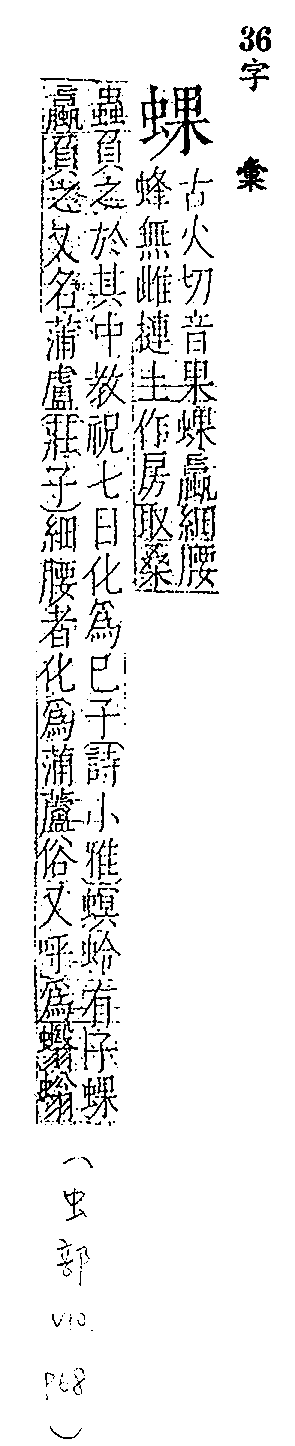 36字彙
蜾 古火切音果蜾蠃細腰
蜂無雌摙土作房取桑
蟲負之於其中教祝七日化為已子〔詩小雅〕螟蛉有子蜾
蠃負之又名蒲盧〔莊子〕細腰者化〔為蒲蘆俗又呼為蠮螉
（虫部 V10. P68）